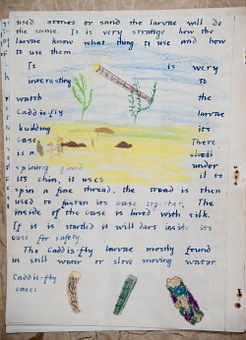 used stones or sand the larvae will do
the same. It is very strange how the
larvae know what thing to use and how
to use them
It is very
interesting to
watch the
caddis-fly larvae
building its
case There
is a under
spining it to
its chin, it uses
spin a fine thread, the thread is then
used to fasten its case together. The
inside of the case is lined with silk.
If it is startled it will dart inside its
case for safety.
The Caddis-fly larvae mostly found
in still water or slow moving water.
Caddis-fly
cases